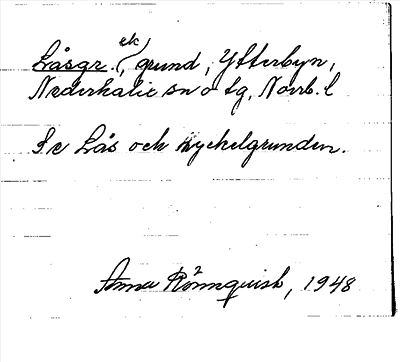 Låsgr., ek, grund, Ytterbyn,
Nederkalix sn o tg, Norrb. l
Se Lås och nyckelgrunden.
Anna Rönnquist, 1948